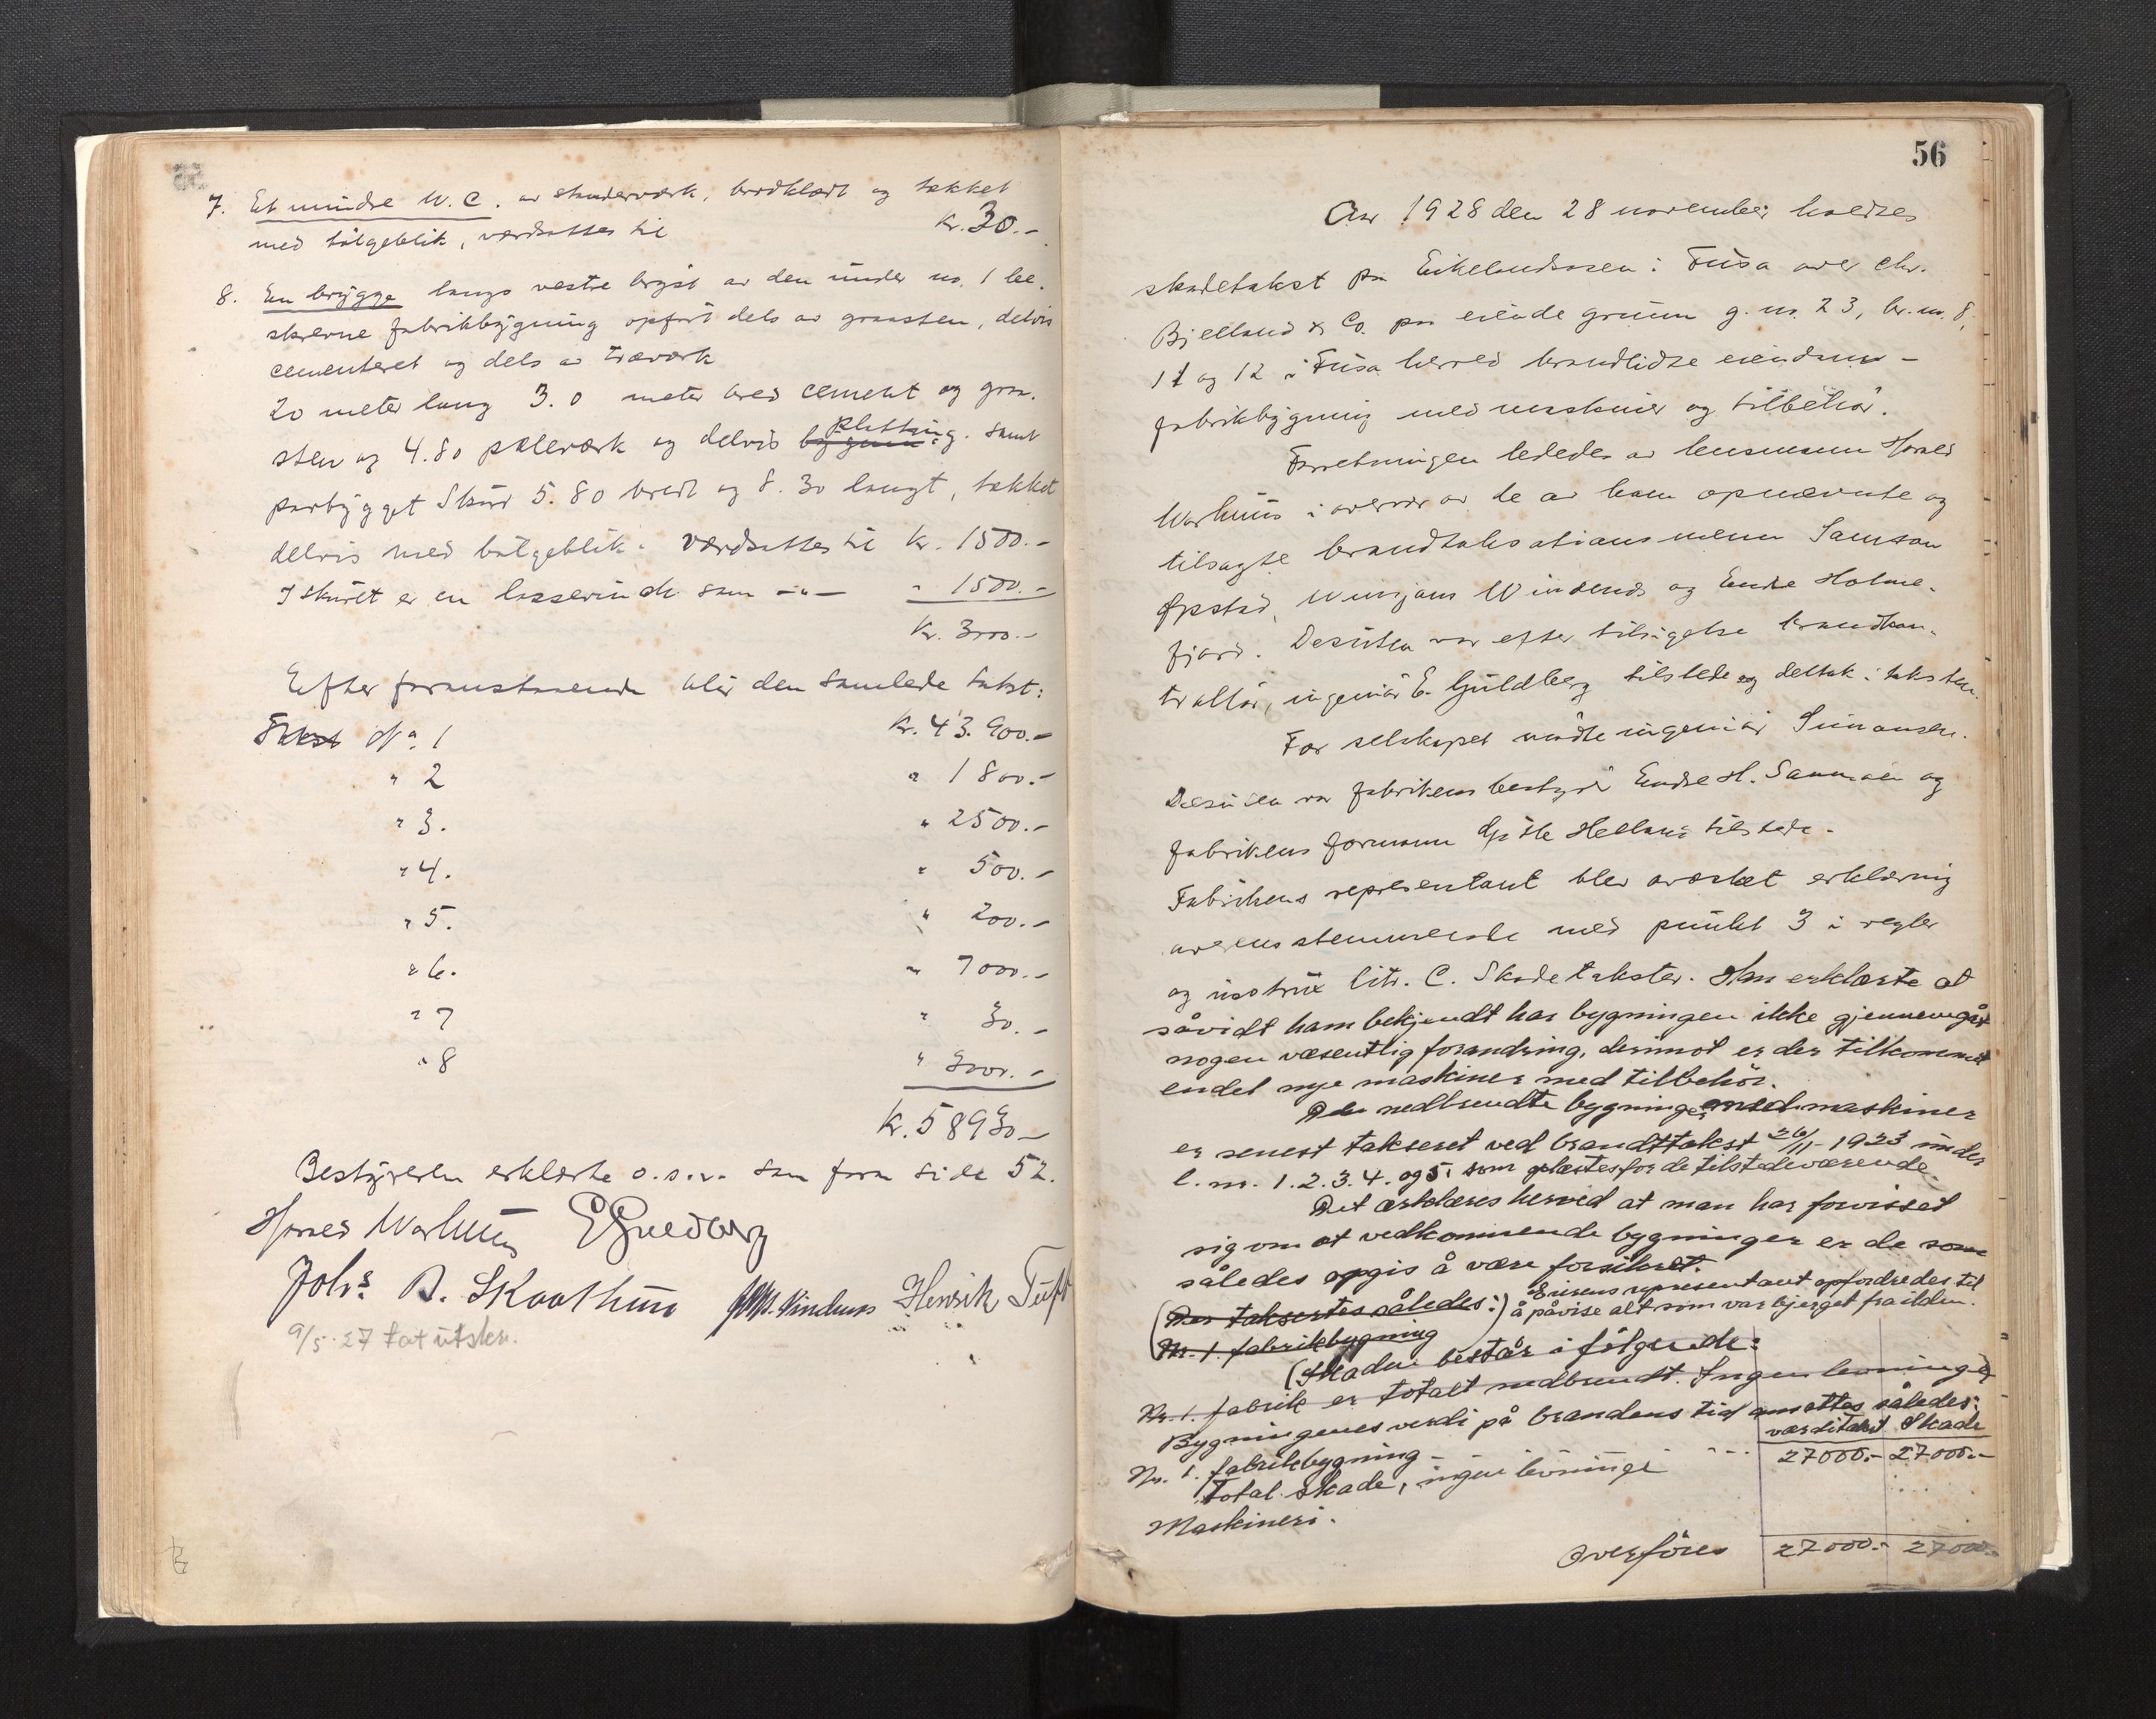 7. Et mindre W.C. av stenderværk, bordklædt og tækket
med bølgeblik, værdsattes til kr. 30.-
8. En brygge langs vestre langs av den under no. 1 be-
skrevne fabrikbygning opført dels av graasten, delvis
cementeret og dels av træværk
20 meter lang 3.0 meter bred cement og graa-
sten og 4.80 pæleværk og delvis platting. Samt
paabygget Skur 5.80 bredt og 8.30 langt, tækket
delvis med bølgeblik. Værdsattes til kr. 1500.-
I skuret er en lossevinch som -"- " 1500.-
Kr. 3000.-
Efter foranstaaende blir den samlede takst:
Takst No. 1 Kr. 43.900.-
" 2 " 1800.-
" 3. " 2500.-
" 4. " 500.-
" 5. " 200.-
" 6. " 7000.-
" 7 " 30.-
" 8 " 3000.-
Kr. 58930.-
Bestyreren erklærte o.s.v. som foran side 52.
Hjorald Warhuus E Guldberg
Johs B. Skaathun Vindenes Henrik Tuft
9/5-27 tat utskr.
56
Aar 1928 den 28 november holdtes
skadetakst paa Eikelandsosen i Fusa over Chr.
Bjelland & Co. paa eiende grunn g.nr. 23, br.nr. 8,
11 og 12 i Fusa herred brandlidte eiendom -
fabrikbygning med maskiner og tilbehør.
Forretningen lededes av lensmann
Warhuus i overvær av de av ham opnævnte og
tilsagte brandtaksationsmenn Samson
Opstad, Windenes og Endre Holme-
fjord. Desuten var efter tilsigelse brandkon-
trollør, ingeniør E. Guldberg tilstede og deltok i taksten.
For selskapet møtte ingeniør Simonsen.
Desuten var fabrikens bestyrer Endre H. Samnøen og
fabrikens formann Helland tilstede.
Fabrikens representant blev avæsket erklæring
overensstemmende med punkt 3 i regler
og instrux litr. C. Skadetakster. Han erklærte at
såvidt ham bekjendt har bygningen ikke gjennemgåt
nogen væsentlig forandring, derimot er der tilkommet
endel nye maskiner med tilbehør.
De nedbrendte bygninger med maskiner
er senest takseret ved brandttakst 26/11-1923 under
l.nr. 1.2.3.4. og 5. som oplæstes for de tilstedeværende.
Det erklæres herved at man har forvisset
sig om at vedkommende bygninger er de som
således opgis å være forsikret.
Eierens representant opfordredes til
(Der takseres således:) å påvise alt som var bjerget fra ilden.
Nr. 1. fabrikbygning
(Skaden består i følgende:
Nr. 1. fabrik er totalt nedbrendt. Ingen levninger)
Bygningenes verdi på brandens tid ansettes således:
værditakst Skade
Nr. 1. fabrikbygning - 27000.- 27000.-
Total skade, ingen levninger
Maskineri.
Overføres 27000.- 27000.-